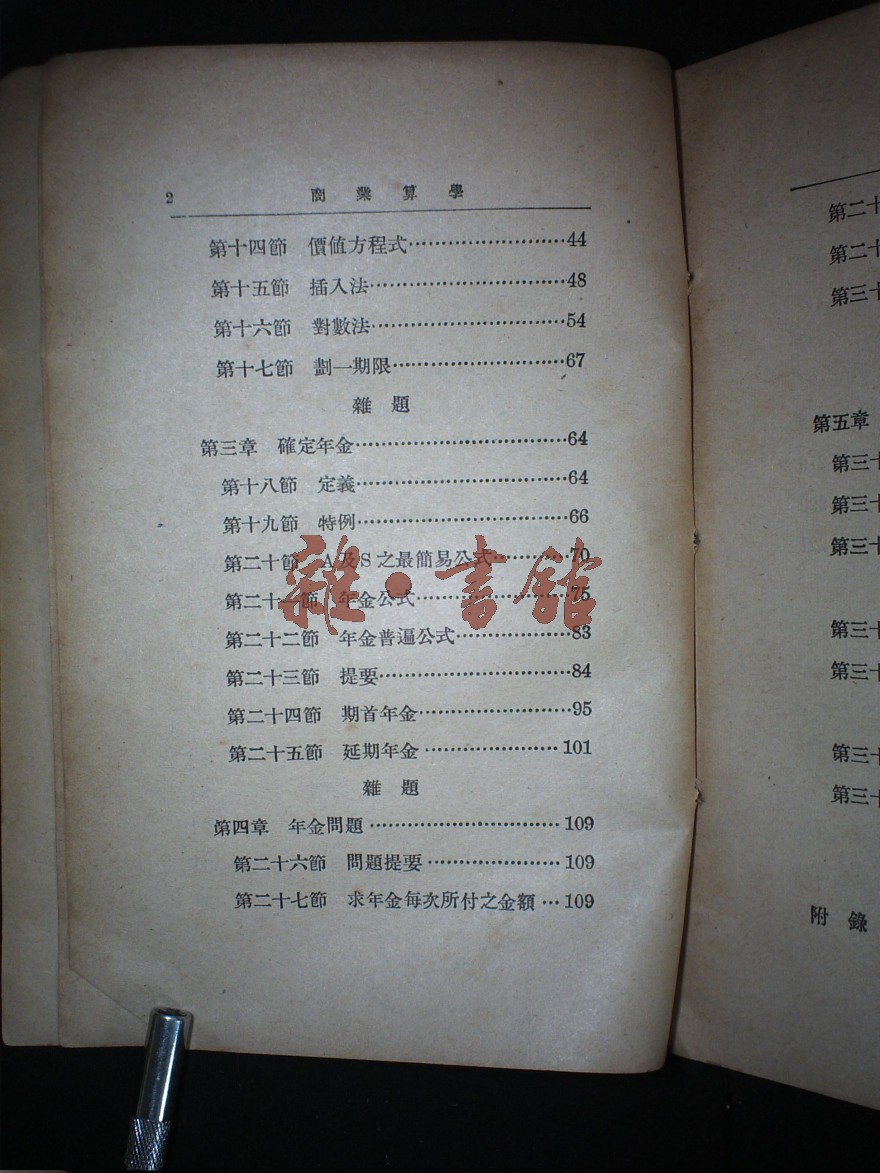 2 商業算學
第十四節 價值方程式························44
第十五節 插入法······························48
第十六節 對數法······························54
第十七節 劃一期限···························67
雜 題
第三章 確定年金································64
第十八節 定義································64
第十九節 特例································66
第二十節 A及S之最簡易公式············70
第二十一節 年金公式························75
第二十二節 年金普遍公式·················83
第二十三節 提要······························84
第二十四節 期首年金·······················95
第二十五節 延期年金····················101
雜 題
第四章 年金問題·····························109
第二十六節 問題提要····················109
第二十七節 求年金每次所付之金額···109
雜·書館
第二十
第二十
第三十
第五章
第三十
第三十
第三十
第三十
第三十
第三十
第三十
附 錄